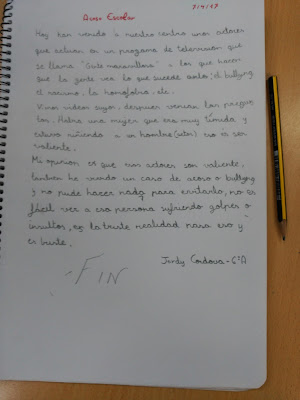 Acoso Escolar
9/4/19
Hoy han venido a nuestro centro unos actores
que actuan en un programa de televisión que
se llama "Gente maravillosa" a los que hacen
que la gente vea lo que sucede ante: el bullying
el racismo, la homofobia, etc.
Vimos videos suyos, despues venian las pregun
tas. Habia una mujer que era muy tímida y
estuvo riñendo a un hombre (actor) eso is ser
valiente.
Mi opinion es que esos actores son valiente,
tambien he viendo un caso de acoso o bullying
y no pude hacer nada para evitarlo, no es
fácil ver a esa persona sufriendo golpes o
insultos, es la triste realidad para eso y
es triste.
FIN
Jordy Cordova - 6ºA